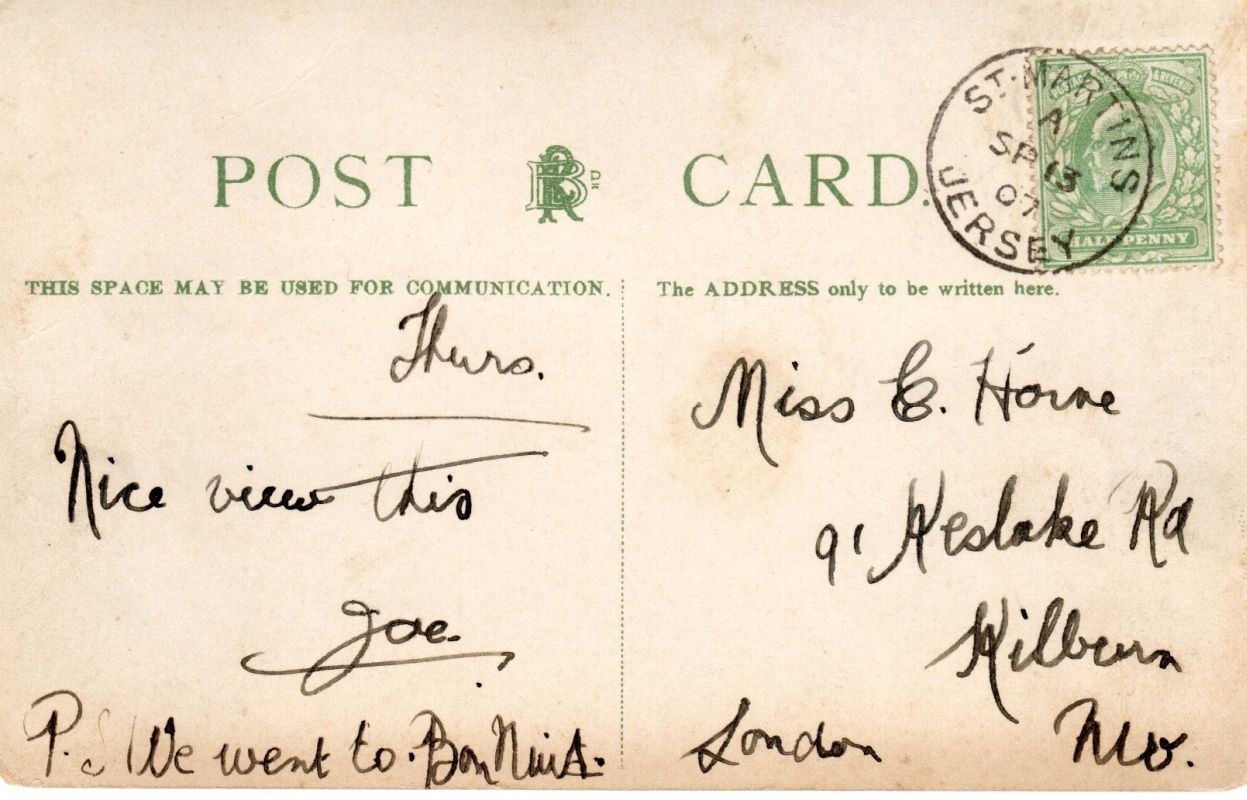 POST CARD.
ST. MARTINS
A
SP 13
07
JERSEY
HALFPENNY
THIS SPACE MAY BE USED FOR COMMUNICATION.
The ADDRESS only to be written here.
Thurs.
Nice view this
Joe.
P.S We went to Bon Nuit.
Miss E. Horne
91 Keslake Rd
Kilburn
London NW.